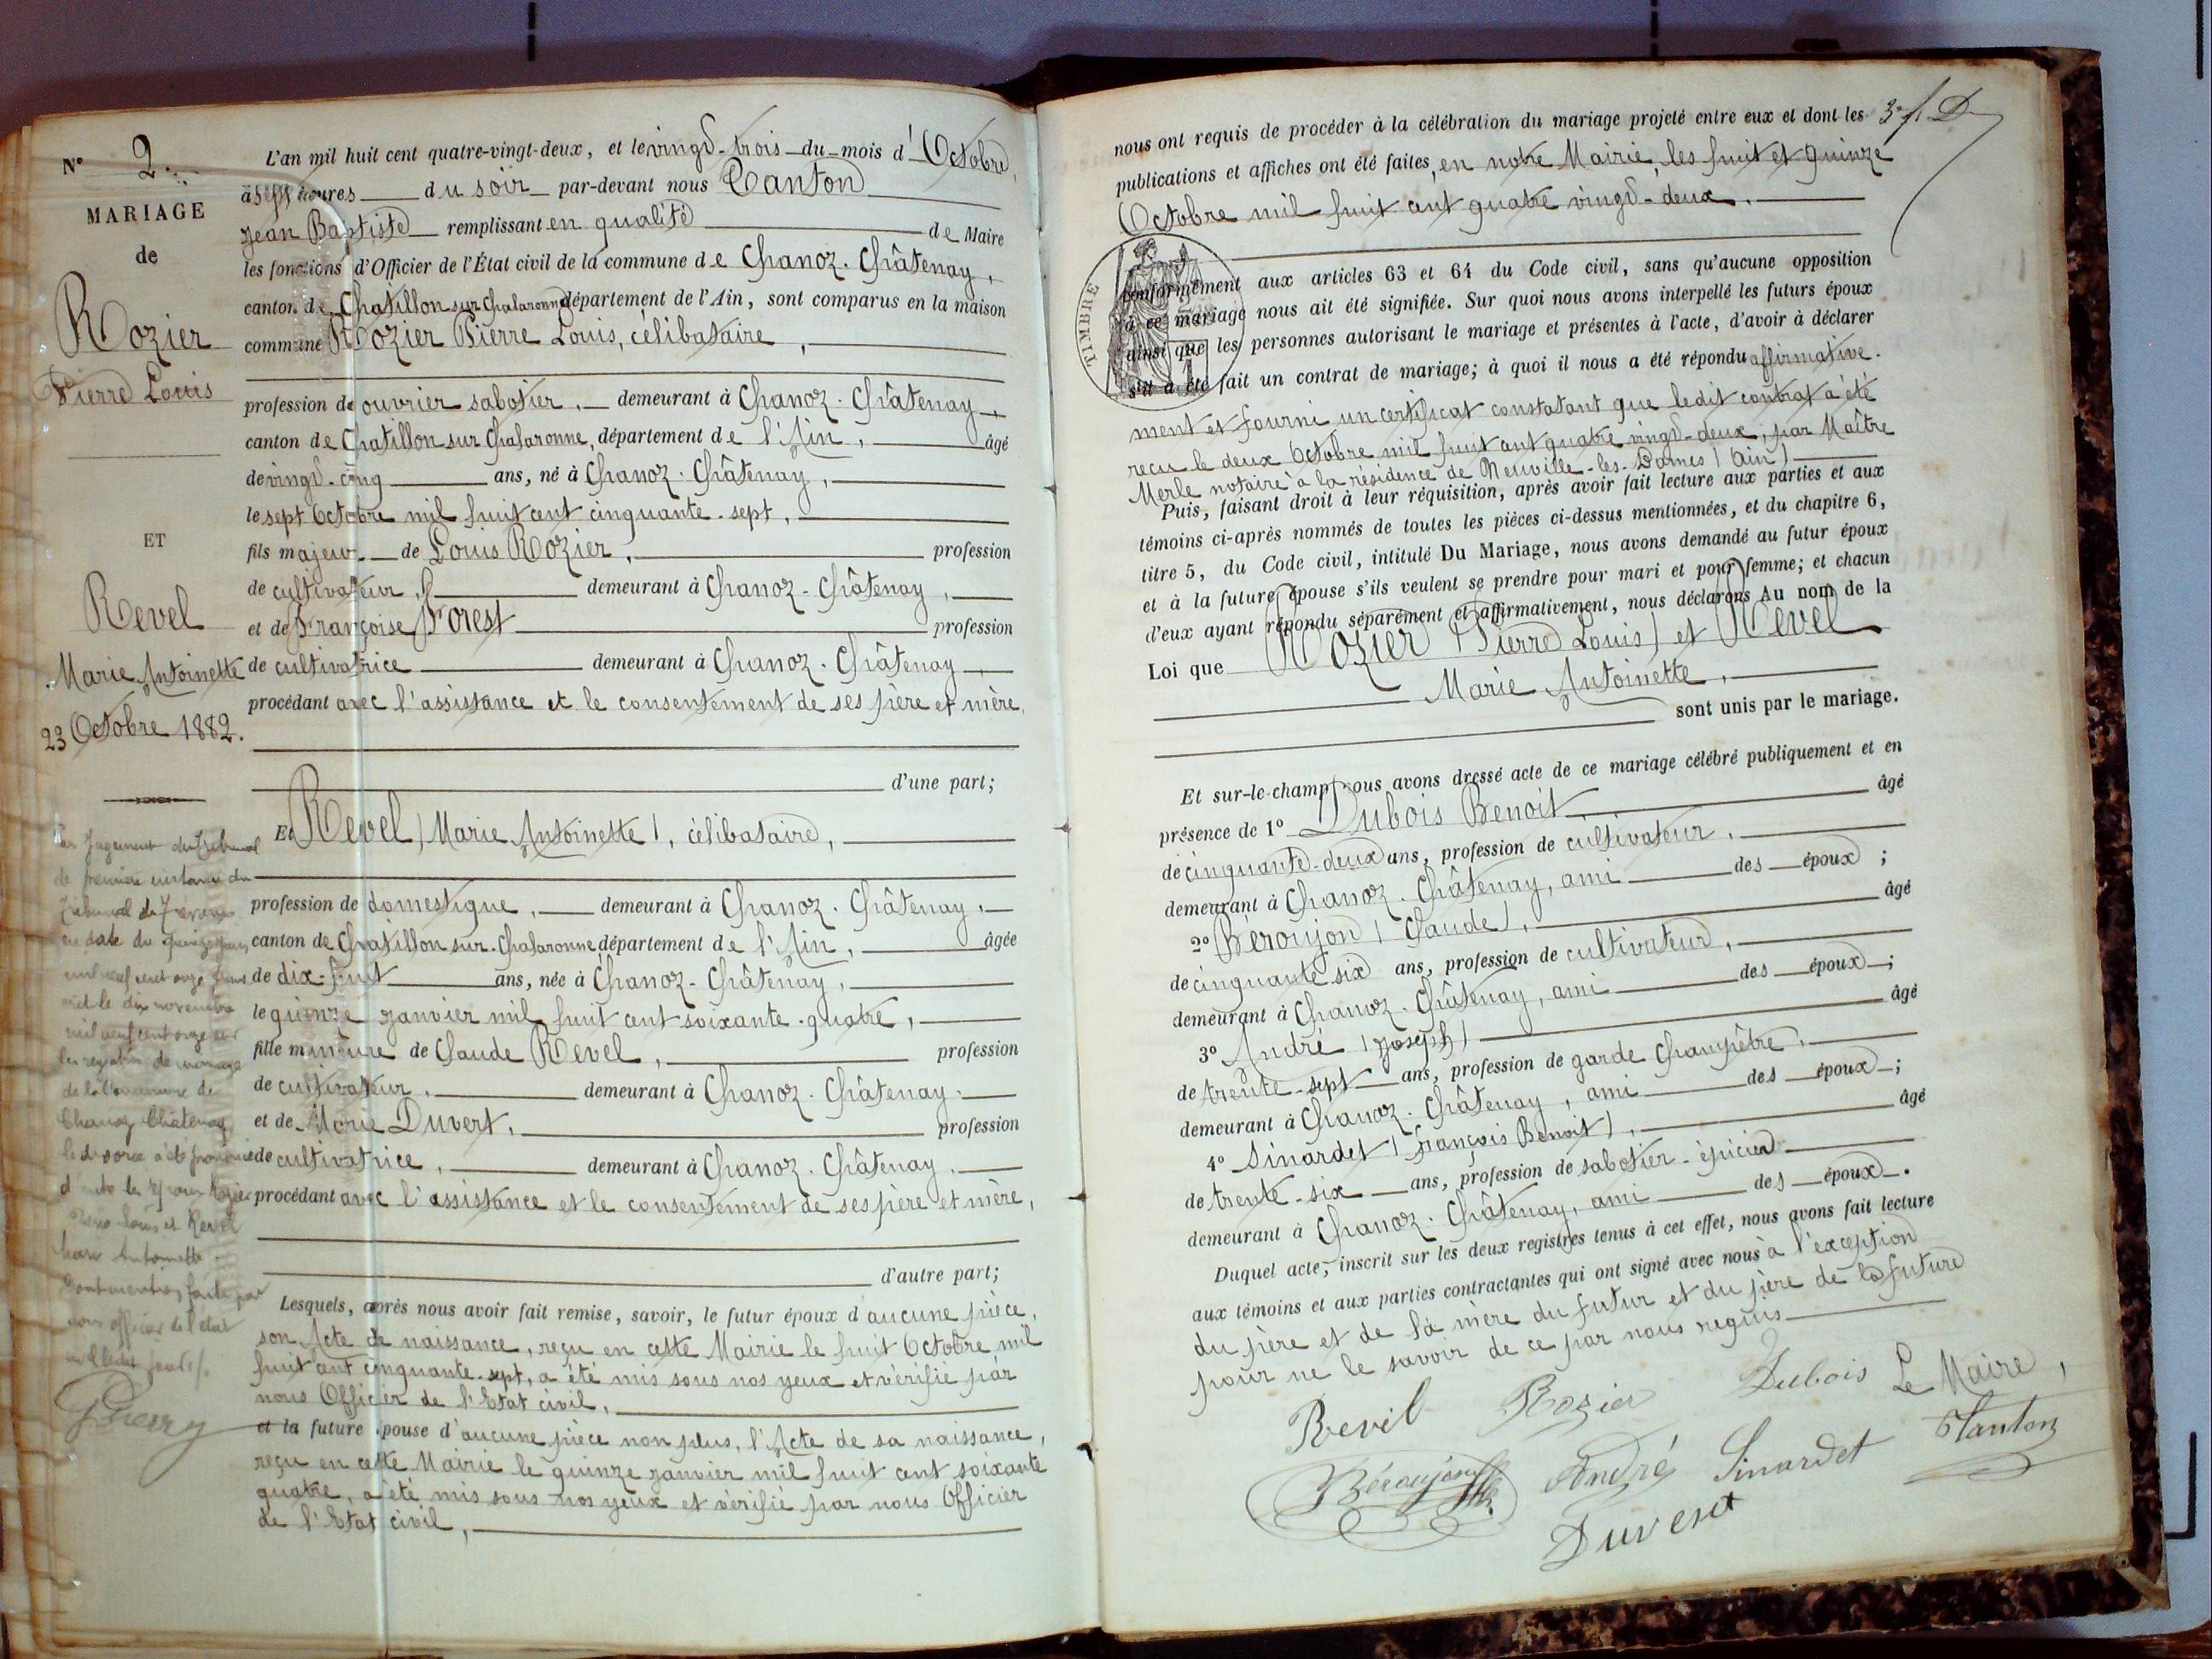 N° 2.
MARIAGE
de
Rozier
Pierre Louis
ET
Revel
Marie Antoinette
23 Octobre 1882.
Par Jugement du Tribunal
de première instance du
Tribunal de Trévoux
en date du quinze juin
mil neuf cent onze
le dix novembre
mil neuf cent onze sur
les registres de mariage
de la Commune de
Chanoz Châtenay
le divorce a été prononcé
d'entre les époux Rozier
Pierre Louis et Revel
Marie Antoinette.
Dont mention faite par
nous officier de l'état
civil
L'an mil huit cent quatre-vingt-deux, et le vingt-trois du mois d'Octobre,
à sept heures du soir par-devant nous Tanton
Jean Baptiste remplissant en qualité de Maire
les fonctions d'Officier de l'État civil de la commune de Chanoz-Châtenay,
canton de Chatillon sur Chalaronne département de l'Ain, sont comparus en la maison
commune Rozier Pierre Louis, célibataire,
profession de ouvrier sabotier, demeurant à Chanoz-Châtenay,
canton de Chatillon sur Chalaronne, département de l'Ain, âgé
de vingt-cinq ans, né à Chanoz-Châtenay,
le sept Octobre mil huit cent cinquante-sept,
fils majeur de Louis Rozier, profession
de cultivateur, demeurant à Chanoz-Châtenay,
et de Françoise Forest profession
de cultivatrice demeurant à Chanoz-Châtenay,
procédant avec l'assistance et le consentement de ses père et mère,
d'une part;
Et Revel (Marie Antoinette), célibataire,
profession de domestique, demeurant à Chanoz-Châtenay,
canton de Chatillon-sur-Chalaronne département de l'Ain, âgée
de dix-huit ans, née à Chanoz-Châtenay,
le quinze janvier mil huit cent soixante-quatre,
fille mineure de Claude Revel, profession
de cultivateur, demeurant à Chanoz-Châtenay.
et de Marie Duvert, profession
de cultivatrice, demeurant à Chanoz-Châtenay,
procédant avec l'assistance et le consentement de ses père et mère,
d'autre part;
Lesquels, après nous avoir fait remise, savoir, le futur époux d'aucune pièce,
son Acte de naissance, reçu en cette Mairie le huit Octobre mil
huit cent cinquante-sept, a été mis sous nos yeux et vérifié par
nous Officier de l'Etat civil,
et la future épouse d'aucune pièce non plus, l'Acte de sa naissance,
reçu en cette Mairie le quinze janvier mil huit cent soixante
quatre, a été mis sous nos yeux et vérifié par nous Officier
de l'Etat civil,
3e f. D
nous ont requis de procéder à la célébration du mariage projeté entre eux et dont les
publications et affiches ont été faites, en notre Mairie, les huit et quinze
Octobre mil huit cent quatre vingt-deux,
TIMBRE
conformément aux articles 63 et 64 du Code civil, sans qu'aucune opposition
à ce mariage nous ait été signifiée. Sur quoi nous avons interpellé les futurs époux
ainsi que les personnes autorisant le mariage et présentes à l'acte, d'avoir à déclarer
s'il a été fait un contrat de mariage; à quoi il nous a été répondu affirmative-
ment et fourni un certificat constatant que ledit contrat a été
reçu le deux Octobre mil huit cent quatre vingt-deux, par Maître
Merle notaire à la résidence de Neuville-les-Dames (Ain)
Puis, faisant droit à leur réquisition, après avoir fait lecture aux parties et aux
témoins ci-après nommés de toutes les pièces ci-dessus mentionnées, et du chapitre 6,
titre 5, du Code civil, intitulé Du Mariage, nous avons demandé au futur époux
et à la future épouse s'ils veulent se prendre pour mari et pour femme; et chacun
d'eux ayant répondu séparément et affirmativement, nous déclarons Au nom de la
Loi que Rozier (Pierre Louis) et Revel
Marie Antoinette,
sont unis par le mariage.
Et sur-le-champ nous avons dressé acte de ce mariage célébré publiquement et en
présence de 1° Dubois Benoit, âgé
de cinquante-deux ans, profession de cultivateur,
demeurant à Chanoz-Châtenay, ami des époux;
2° Béroujon (Claude), âgé
de cinquante six ans, profession de cultivateur,
demeurant à Chanoz-Châtenay, ami des époux;
3° André (Joseph) âgé
de trente-sept ans, profession de garde Champêtre,
demeurant à Chanoz-Châtenay, ami des époux;
4° Sinardet (François Benoit), âgé
de trente-six ans, profession de sabotier-épicier
demeurant à Chanoz-Châtenay, ami des époux.
Duquel acte, inscrit sur les deux registres tenus à cet effet, nous avons fait lecture
aux témoins et aux parties contractantes qui ont signé avec nous à l'exception
du père et de la mère du futur et du père de la future
pour ne le savoir de ce par nous requis
Revel Rozier Dubois Le Maire,
Béroujon André Sinardet Tanton
Duvert